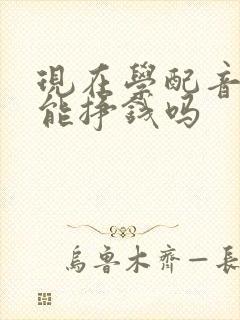 現在學配音
能掙錢吗
烏魯木齊—長